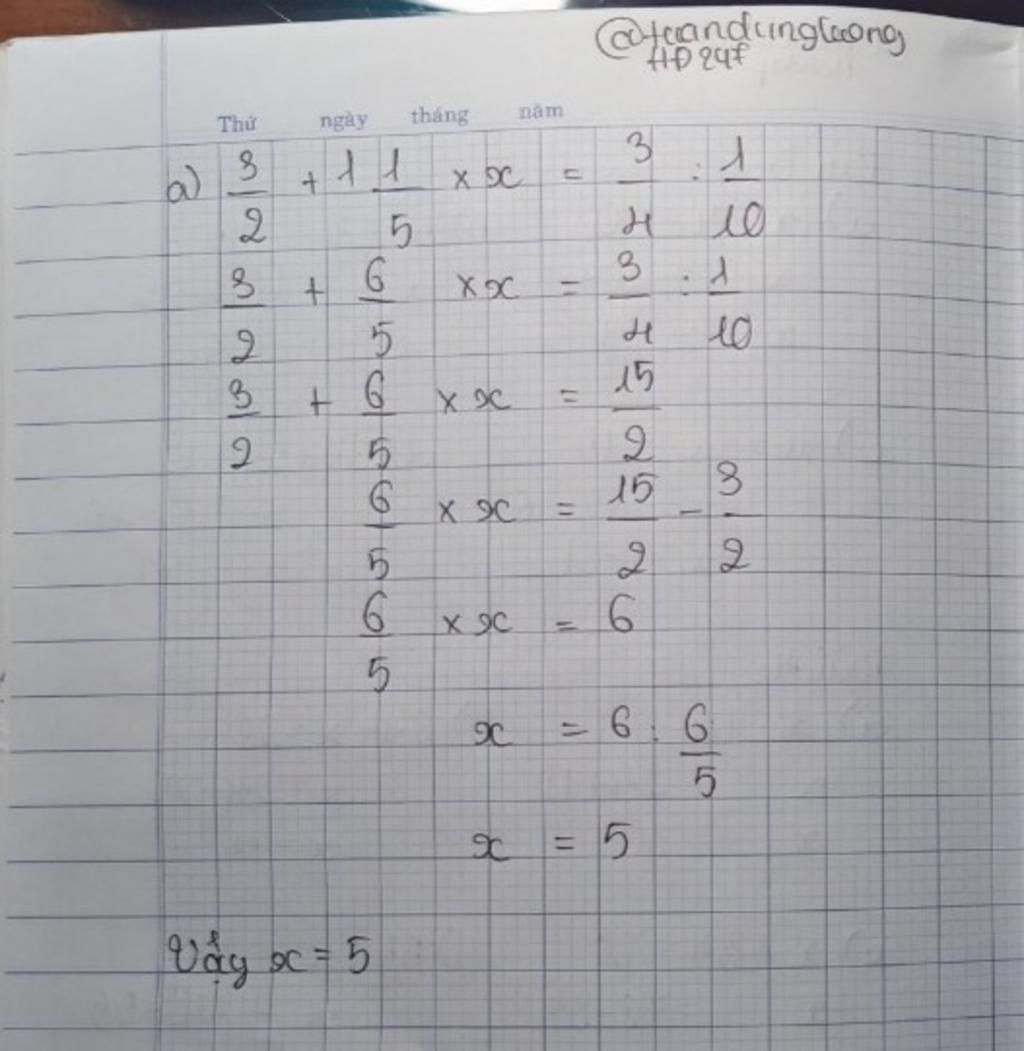 @tuandungluong
HĐ247
Thứ ngày tháng năm
a) 3/2 + 1 1/5 × x = 3/4 : 1/10
3/2 + 6/5 × x = 3/4 : 1/10
3/2 + 6/5 × x = 15/2
6/5 × x = 15/2 - 3/2
6/5 × x = 6
x = 6 : 6/5
x = 5
Vậy x = 5